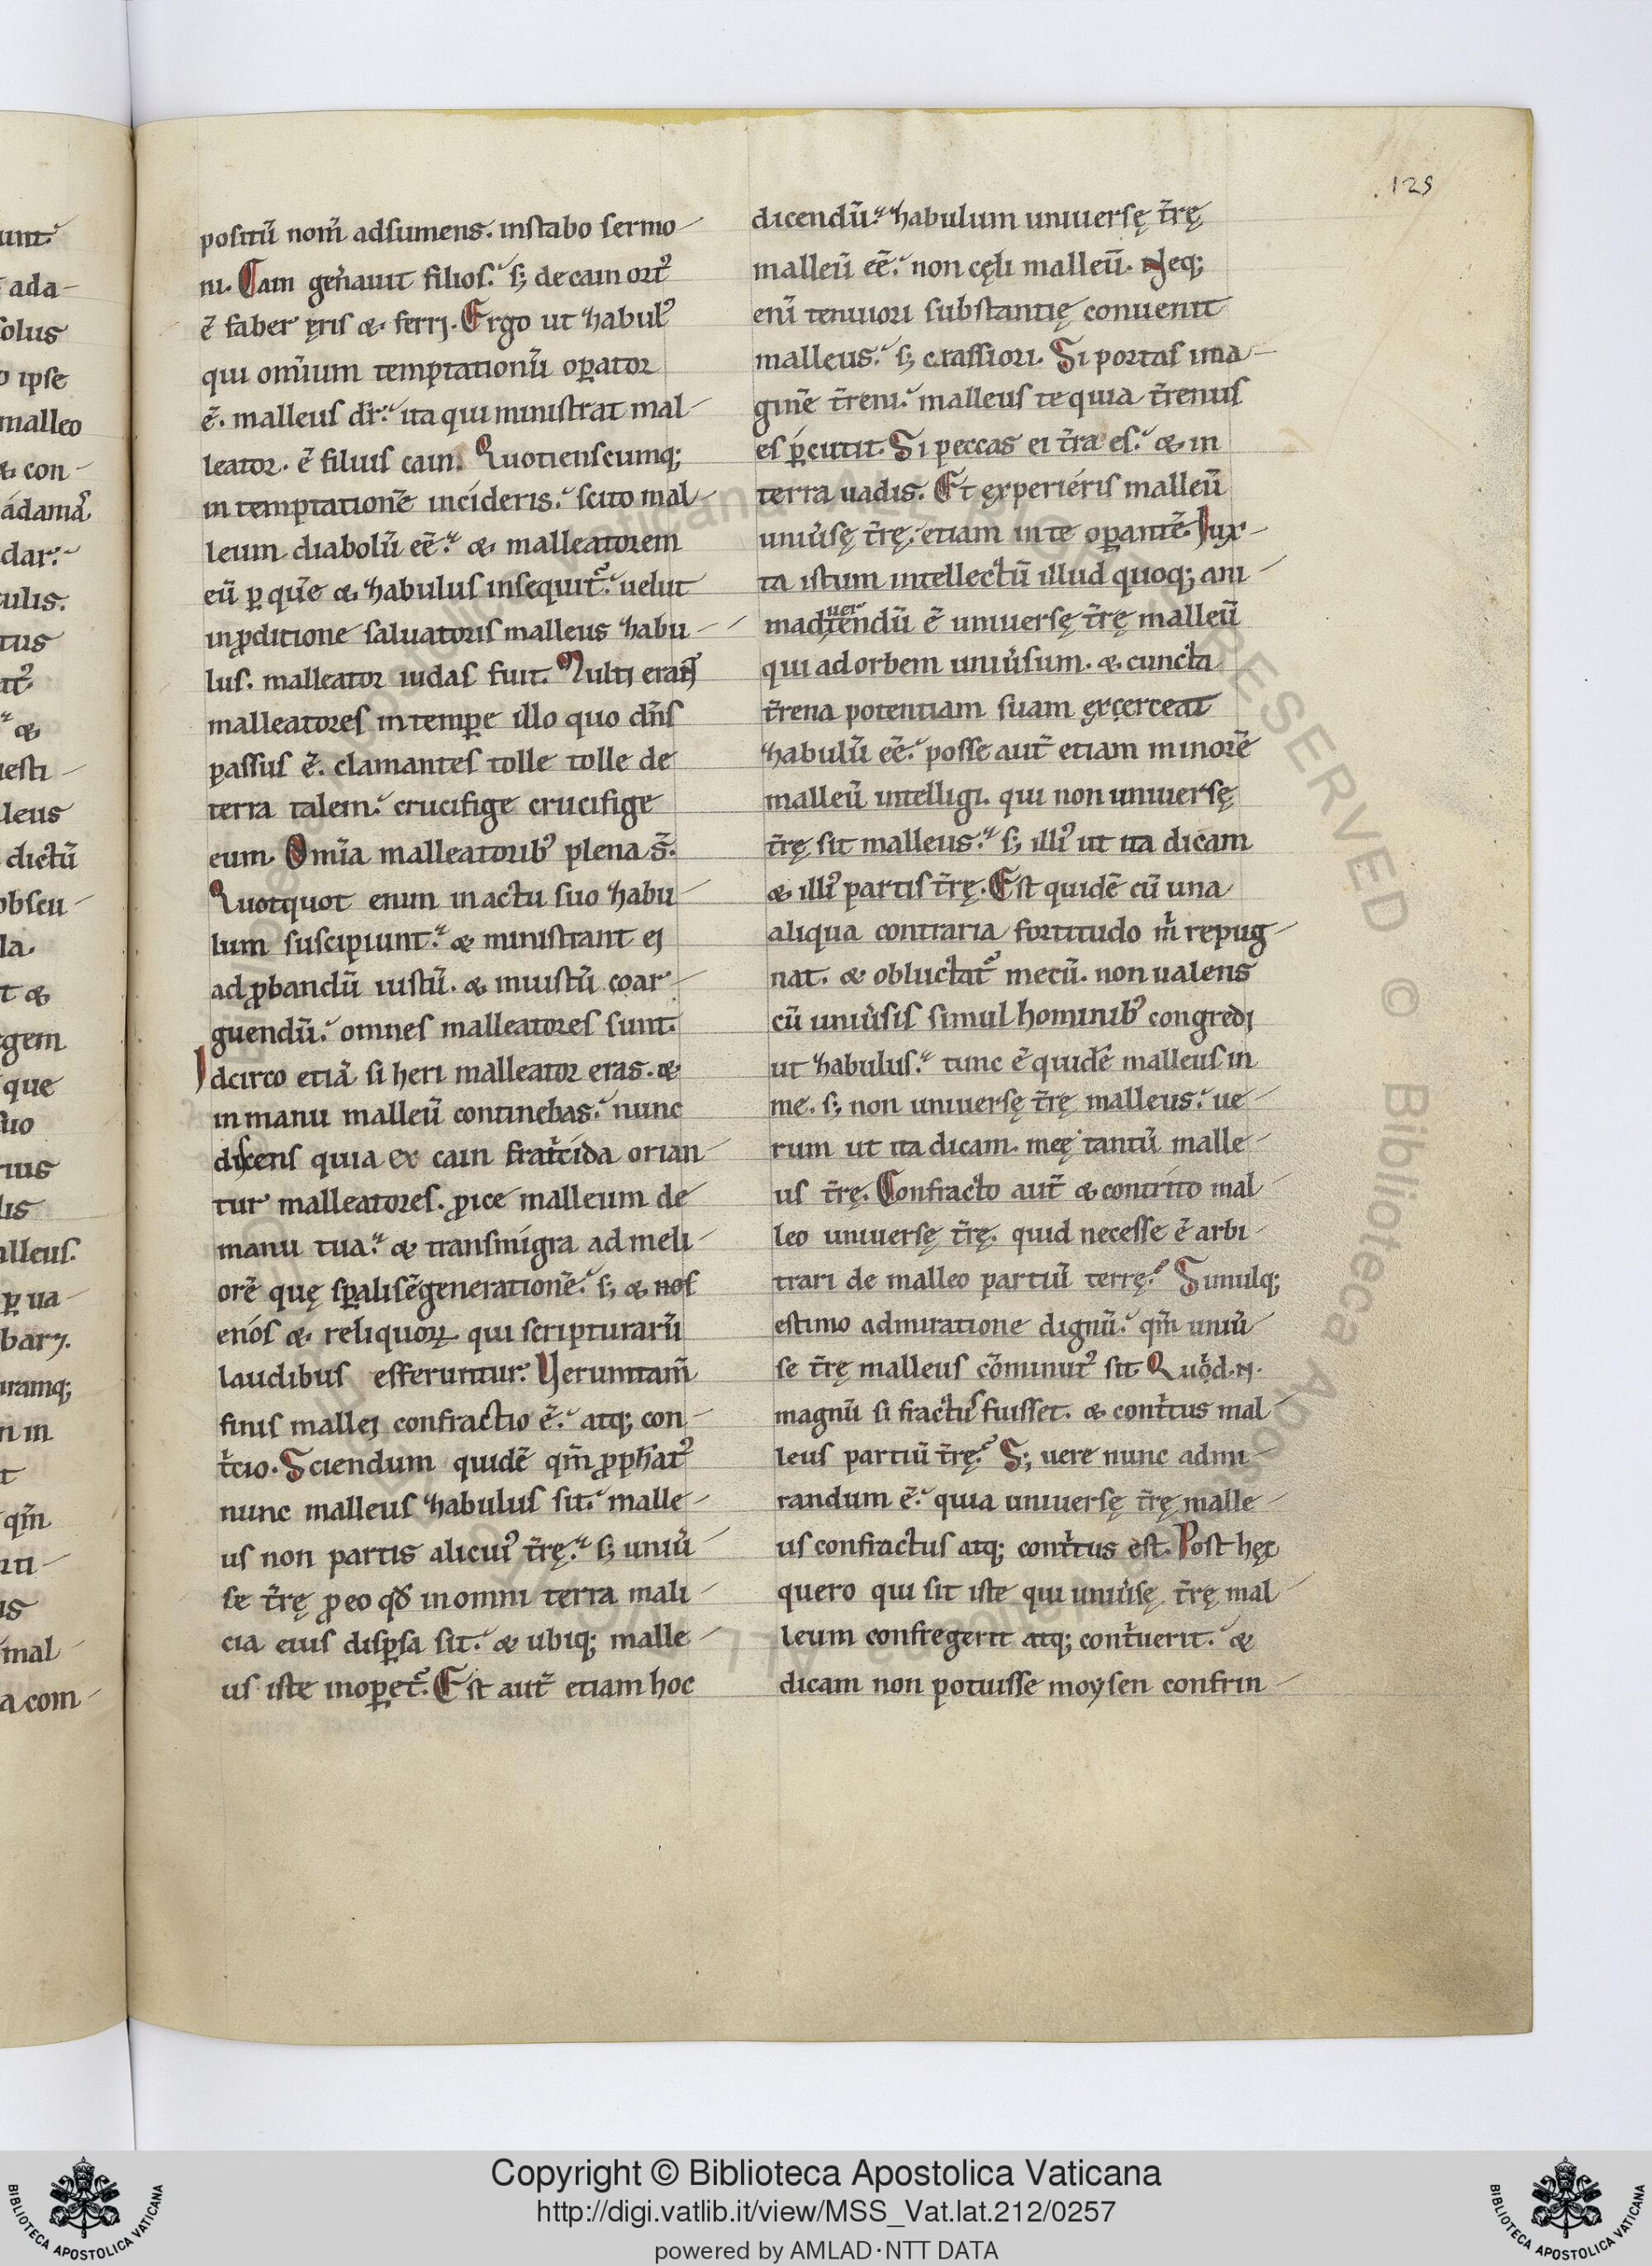 positū nom̄ adsumens. instabo sermo-
ni. Cain gen̄auit filios. s; de cain ort᾿
ē faber ęris & ferri. Ergo ut zhabul᾿
qui om̄ium temptationū oꝑator
ē. malleus dr̄. ita qui ministrat mal-
leator. ē filius cain. Quotienscumq;
in temptationē incideris. scito mal-
leum diabolū eē. & malleatorem
eū ꝑ quē & zhabulus insequit᾿. uelut
in ꝓditione saluatoris malleus zhabu-
lus. malleator iudas fuit. Multi erant
malleatores in temꝑe illo quo dn̄s
passus ē. clamantes tolle tolle de
terra talem. crucifige crucifige
eum. Om̄ia malleatorib᾿ plena s̄.
Quotquot enim in actu suo zhabu-
lum suscipiunt. & ministrant ei
ad ꝓbandū iustū. & iniustū coar-
guendū. omnes malleatores sunt.
Idcirco etiā si heri malleator eras. &
in manu malleū continebas. nunc
discens quia ex cain fratͥcida orian-
tur malleatores. ꝓice malleum de
manu tua. & transmigra ad meli-
orē quę sp̄alis ē generationē. s; & nos
enos & reliquoꝝ qui scripturarū
laudibus efferuntur. Ueruntam̄
finis mallei confractio ē. atq; con-
tͥcio. Sciendum quidē qm̄ ꝓphat᾿
nunc malleus zhabulus sit. malle-
us non partis alicui᾿ tr̄ę. s; uniū-
se tr̄ę ꝓ eo qđ in omni terra mali-
cia eius disꝑsa sit. & ubiq; malle-
us iste inoꝑet᾿. Est aut̄ etiam hoc
dicendū. zhabulum uniuersę tr̄ę
malleū eē. non cęli malleū. Neq;
enī tenuiori substantię conuenit
malleus. s; crassiori. Si portas ima-
ginē tr̄eni. malleus te quia tr̄enus
es ꝑcutit. Si peccas ei tr̄a es. & in
terra uadis. Et experiéris malleū
uniūsę tr̄ę. etiam in te oꝑantē. Iux-
ta istum intellectū illud quoq; ani-
maduertendū ē uniuersę tr̄ę malleū
qui ad orbem uniūsum. & cuncta
tr̄ena potentiam suam exerceat
zhabulū eē. posse aut̄ etiam minorē
malleū intelligi. qui non uniuersę
tr̄ę sit malleus. s; illi᾿ ut ita dicam
& illi᾿ partis tr̄ę. Est quidē cū una
aliqua contraria fortitudo mͥ repug-
nat. & obluctat᾿ mecū. non ualens
cū uniūsis simul hominib᾿ congredi
ut zhabulus. tunc ē quidē malleus in
me. s; non uniuersę tr̄ę malleus. ue-
rum ut ita dicam. meę tantū malle-
us tr̄ę. Confracto aut̄ & contrito mal-
leo uniuersę tr̄ę. quid necesse ē arbi-
trari de malleo partiū terrę. Simulq;
estimo admiratione dignū. qm̄ uniū-
se tr̄ę malleus cōminut᾿ sit. Quod.n.
magnū si fractus fuisset. & contͥtus mal-
leus partiū tr̄ę. S; uere nunc admi-
randum ē. quia uniuersę tr̄ę malle-
us confractus atq; contͥtus est. Post hęc
quero qui sit iste qui uniūsę tr̄ę mal-
leum confregerit atq; contͥuerit. &
dicam non potuisse moysen confrin-
125
Copyright © Biblioteca Apostolica Vaticana
http://digi.vatlib.it/view/MSS_Vat.lat.212/0257
powered by AMLAD·NTT DATA